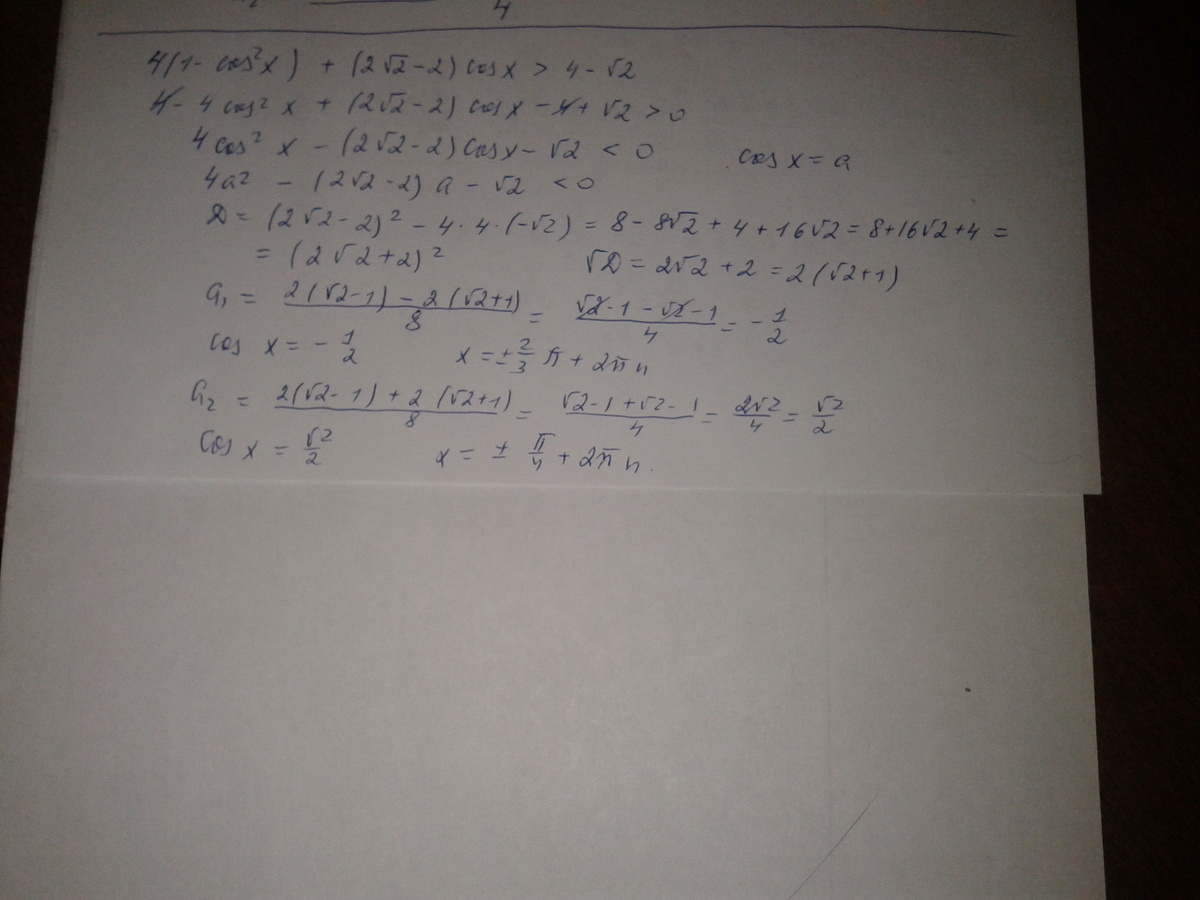 4
4(1 - cos²x) + (2√2 - 2) cos x > 4 - √2
4 - 4 cos² x + (2√2 - 2) cos x - 4 + √2 > 0
4 cos² x - (2√2 - 2) cos x - √2 < 0 cos x = a
4a² - (2√2 - 2) a - √2 < 0
D = (2√2 - 2)² - 4·4·(-√2) = 8 - 8√2 + 4 + 16√2 = 8 + 16√2 + 4 =
= (2√2 + 2)² √D = 2√2 + 2 = 2(√2 + 1)
a₁ = (2(√2 - 1) - 2(√2 + 1))/8 = (√2 - 1 - √2 - 1)/4 = - 1/2
cos x = - 1/2 x = ± 2/3 π + 2πn
a₂ = (2(√2 - 1) + 2(√2 + 1))/8 = (√2 - 1 + √2 - 1)/4 = 2√2/4 = √2/2
cos x = √2/2 x = ± π/4 + 2πn.